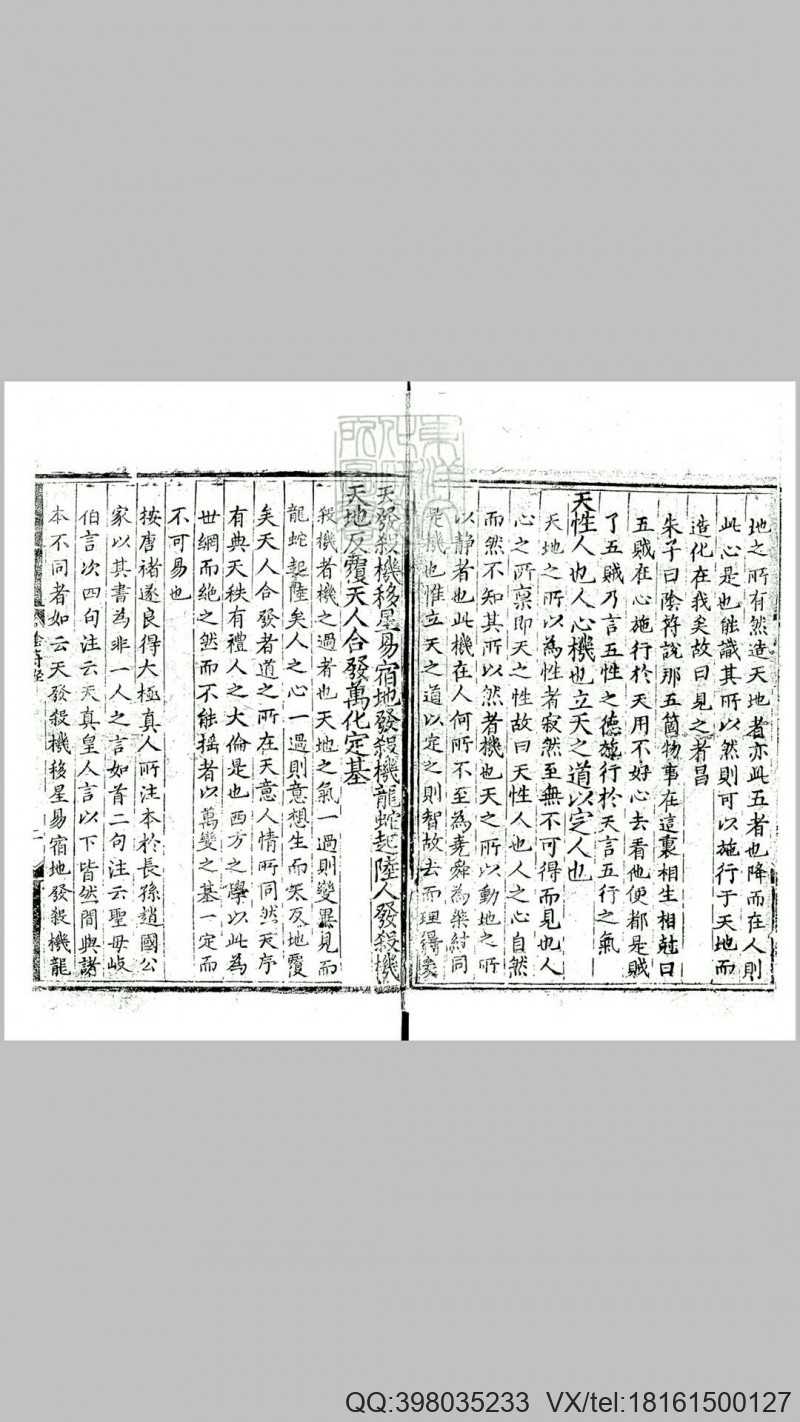 地之所有然造天地者亦此五者也降而在人則
此心是也能識其所以然則可以施行于天地而
造化在我矣故曰見之者昌
朱子曰陰符說那五箇物事在這裏相生相尅曰
五賊在心施行於天用不好心去看他便都是賊
了五賊乃言五性之德施行於天言五行之氣
天性人也人心機也立天之道以定人也
天地之所以為性者寂然至無不可得而見也人
心之所稟即天之性故曰天性人也人之心自然
而然不知其所以然者機也天之所以動地之所
以静者也此機在人何所不至為堯舜為桀紂同
是機也惟立天之道以定之則智故去而理得矣
天發殺機移星易宿地發殺機龍蛇起陸人發殺機
天地反覆天人合發萬化定基
殺機者機之過者也天地之氣一過則變異見而
龍蛇起陸矣人之心一過則意想生而天反地覆
矣天人合發者道之所在天意人情所同然天序
有典天秩有禮人之大倫是也西方之學以此為
世綱而絶之然而不能搖者以萬變之基一定而
不可易也
按唐褚遂良得大極真人所注本於長孫趙國公
家以其書為非一人之言如首二句注云聖母岐
伯言次四句注云天真皇人言以下皆然間與諸
本不同者如云天發殺機移星易宿地發殺機龍
陰符經
QQ:398035233 VX/tel:18161500127